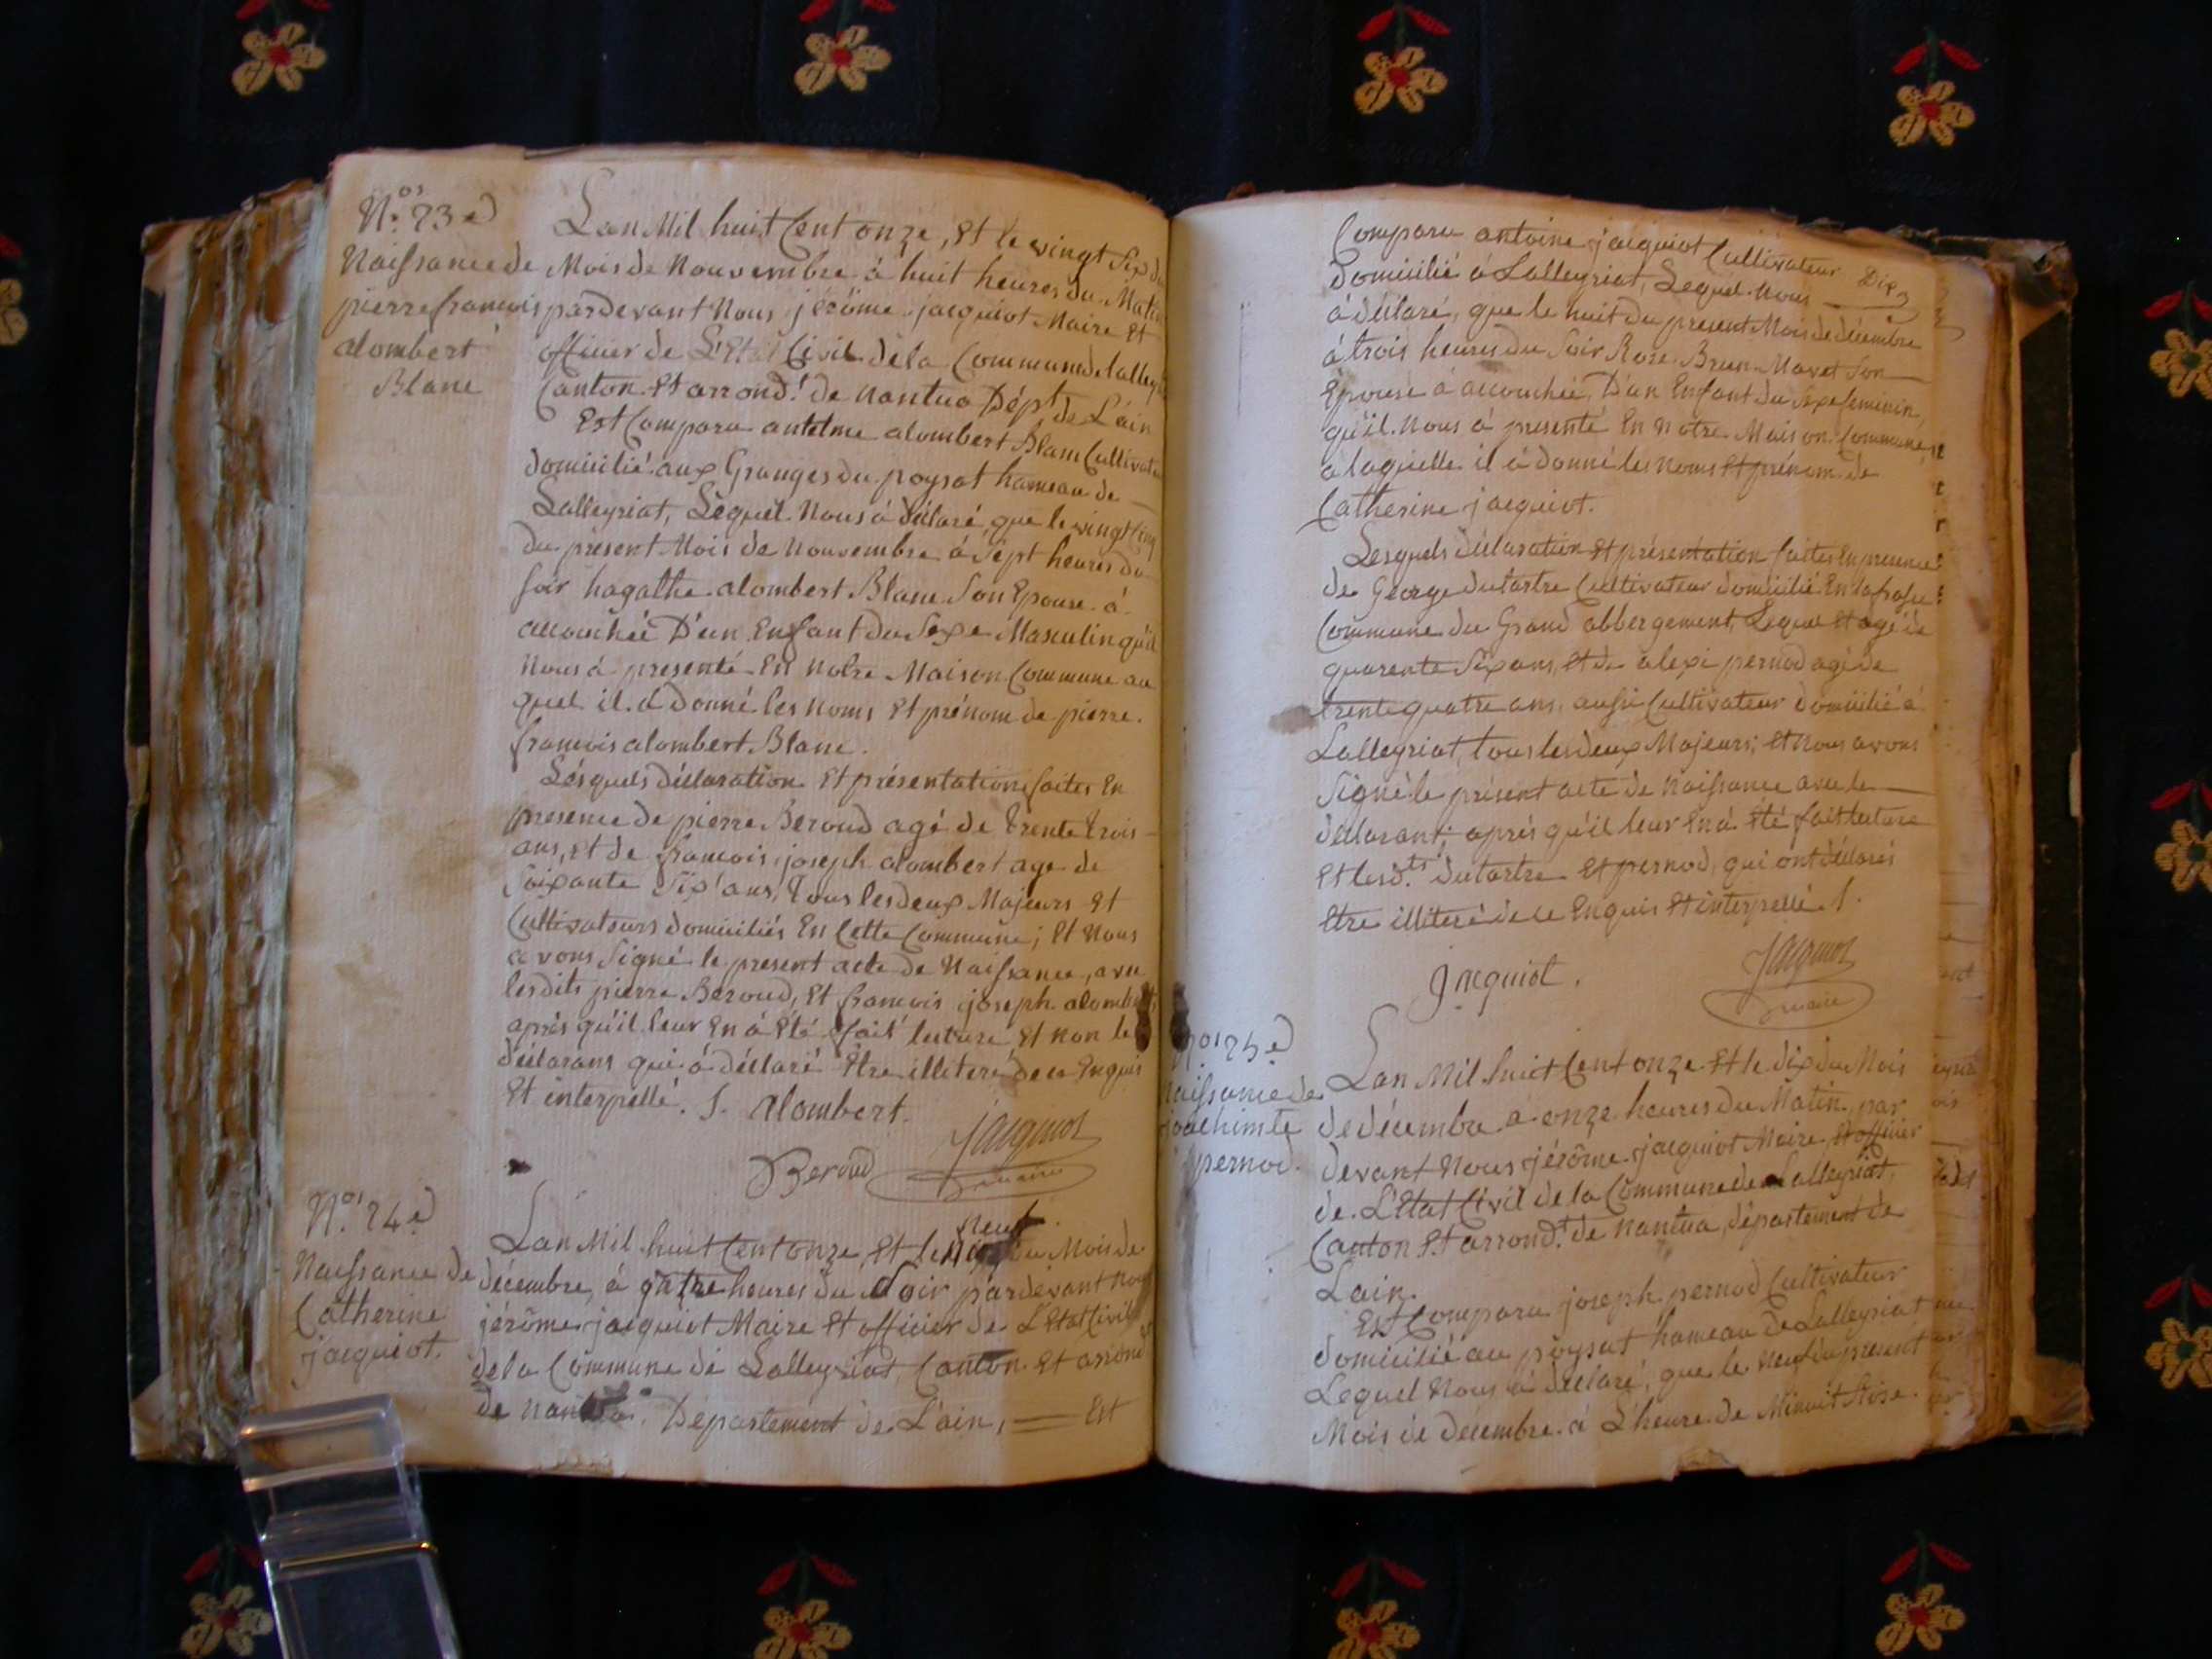 Nos. 23e
Naissance de
pierre francois
alombert
Blanc
Lan Mil huit Cent onze, Et le vingt Six du
Mois de Nouvembre à huit heures du Matin
pardevant Nous jérôme jacquiot Maire Et
officier de L'Etat Civil dela Commune de lalleyriat
Canton Et arrond.t de Nantua Dépt de L'ain
Est Comparu antelme alombert Blanc Cultivateur
domicilié aux Granges du poysat hameau de
Lalleyriat, Lequel Nous á déclaré que le vingt Cinq
du présent Mois de Nouvembre à Sept heures du
Soir hagathe alombert Blanc Son Epouse à
accouchée D'un Enfant du Sexe Masculin qu'il
Nous à presenté En Notre Maison Commune au
quel il á donné les Noms Et prénom de pierre
francois alombert Blanc.
Lesquels déclaration Et présentation faites En
presence de pierre Beroud agé de trente trois
ans, Et de francois joseph alombert age de
Soixante Six ans, tous les deux Majeurs Et
Cultivateurs domiciliés En Cette Commune; Et Nous
avons Signé le present acte de Naissance, avec
lesdits pierre Beroud, Et francois joseph alombert
après qu'il leur En á Eté fait lecture Et Non le
déclarans qui á déclaré Etre illiteré de ce Enquis
Et interpellé. S. alombert.
Beroud jacquiot
maire
Nos. 24e
Naissance de
Catherine
jacquiot.
Neuf
Lan Mil huit Cent onze, Et le du Mois de
décembre, à qatre heures du Soir pardevant Nous
jérôme jacquiot Maire Et officier de L'Etat Civil
dela Commune de Lalleyriat, Canton Et arrond
de Nantua, Département de L'ain, Est
Comparu antoine jacquiot Cultivateur
Domicilié á Lalleyriat, Lequel Nous Dix
á déclaré, que le huit du present Mois de décembre
á trois heures du Soir Rose Brun Mavet Son
Epouse á accouchée, D'un Enfant du Sexe feminin
qu'il Nous á presenté En Notre Maison Commune,
a laquelle il á donné les Noms Et prénom de
Catherine jacquiot.
Lesquels déclaration Et présentation faites En presence
de George dutartre Cultivateur domicilié En lafrasse
Commune du Grand abbergement, Lequel Et agé de
quarente Six ans, Et de alexi pernod agé de
trente quatre ans, aussi Cultivateur domicilié á
Lalleyriat, tous les deux Majeurs; Et Nous avons
Signé le présent acte de Naissance avec le
déclarant, aprés qu'il leur En á Eté fait lecture
Et lesd.ts dutartre Et pernod, qui ont déclarés
Etre illiteré de ce Enquis Et interpellé. S.
Jacquiot. jacquiot
maire
Nos 25e
Naissance de
joachimte
pernod.
Lan Mil huict Cent onze Et le dix du Mois
de décembre a onze heures du Matin, par
devant Nous jérôme jacquiot Maire Et officier
de L'Etat Civil de la Commune de Lalleyriat,
Canton Et arrond.t de Nantua, département de
Lain.
Est Comparu joseph pernod Cultivateur
domicilié au poysat hameau de Lalleyriat
Lequel Nous à déclaré, que le Neuf du present
Mois de décembre á L'heure de Minuit Rose